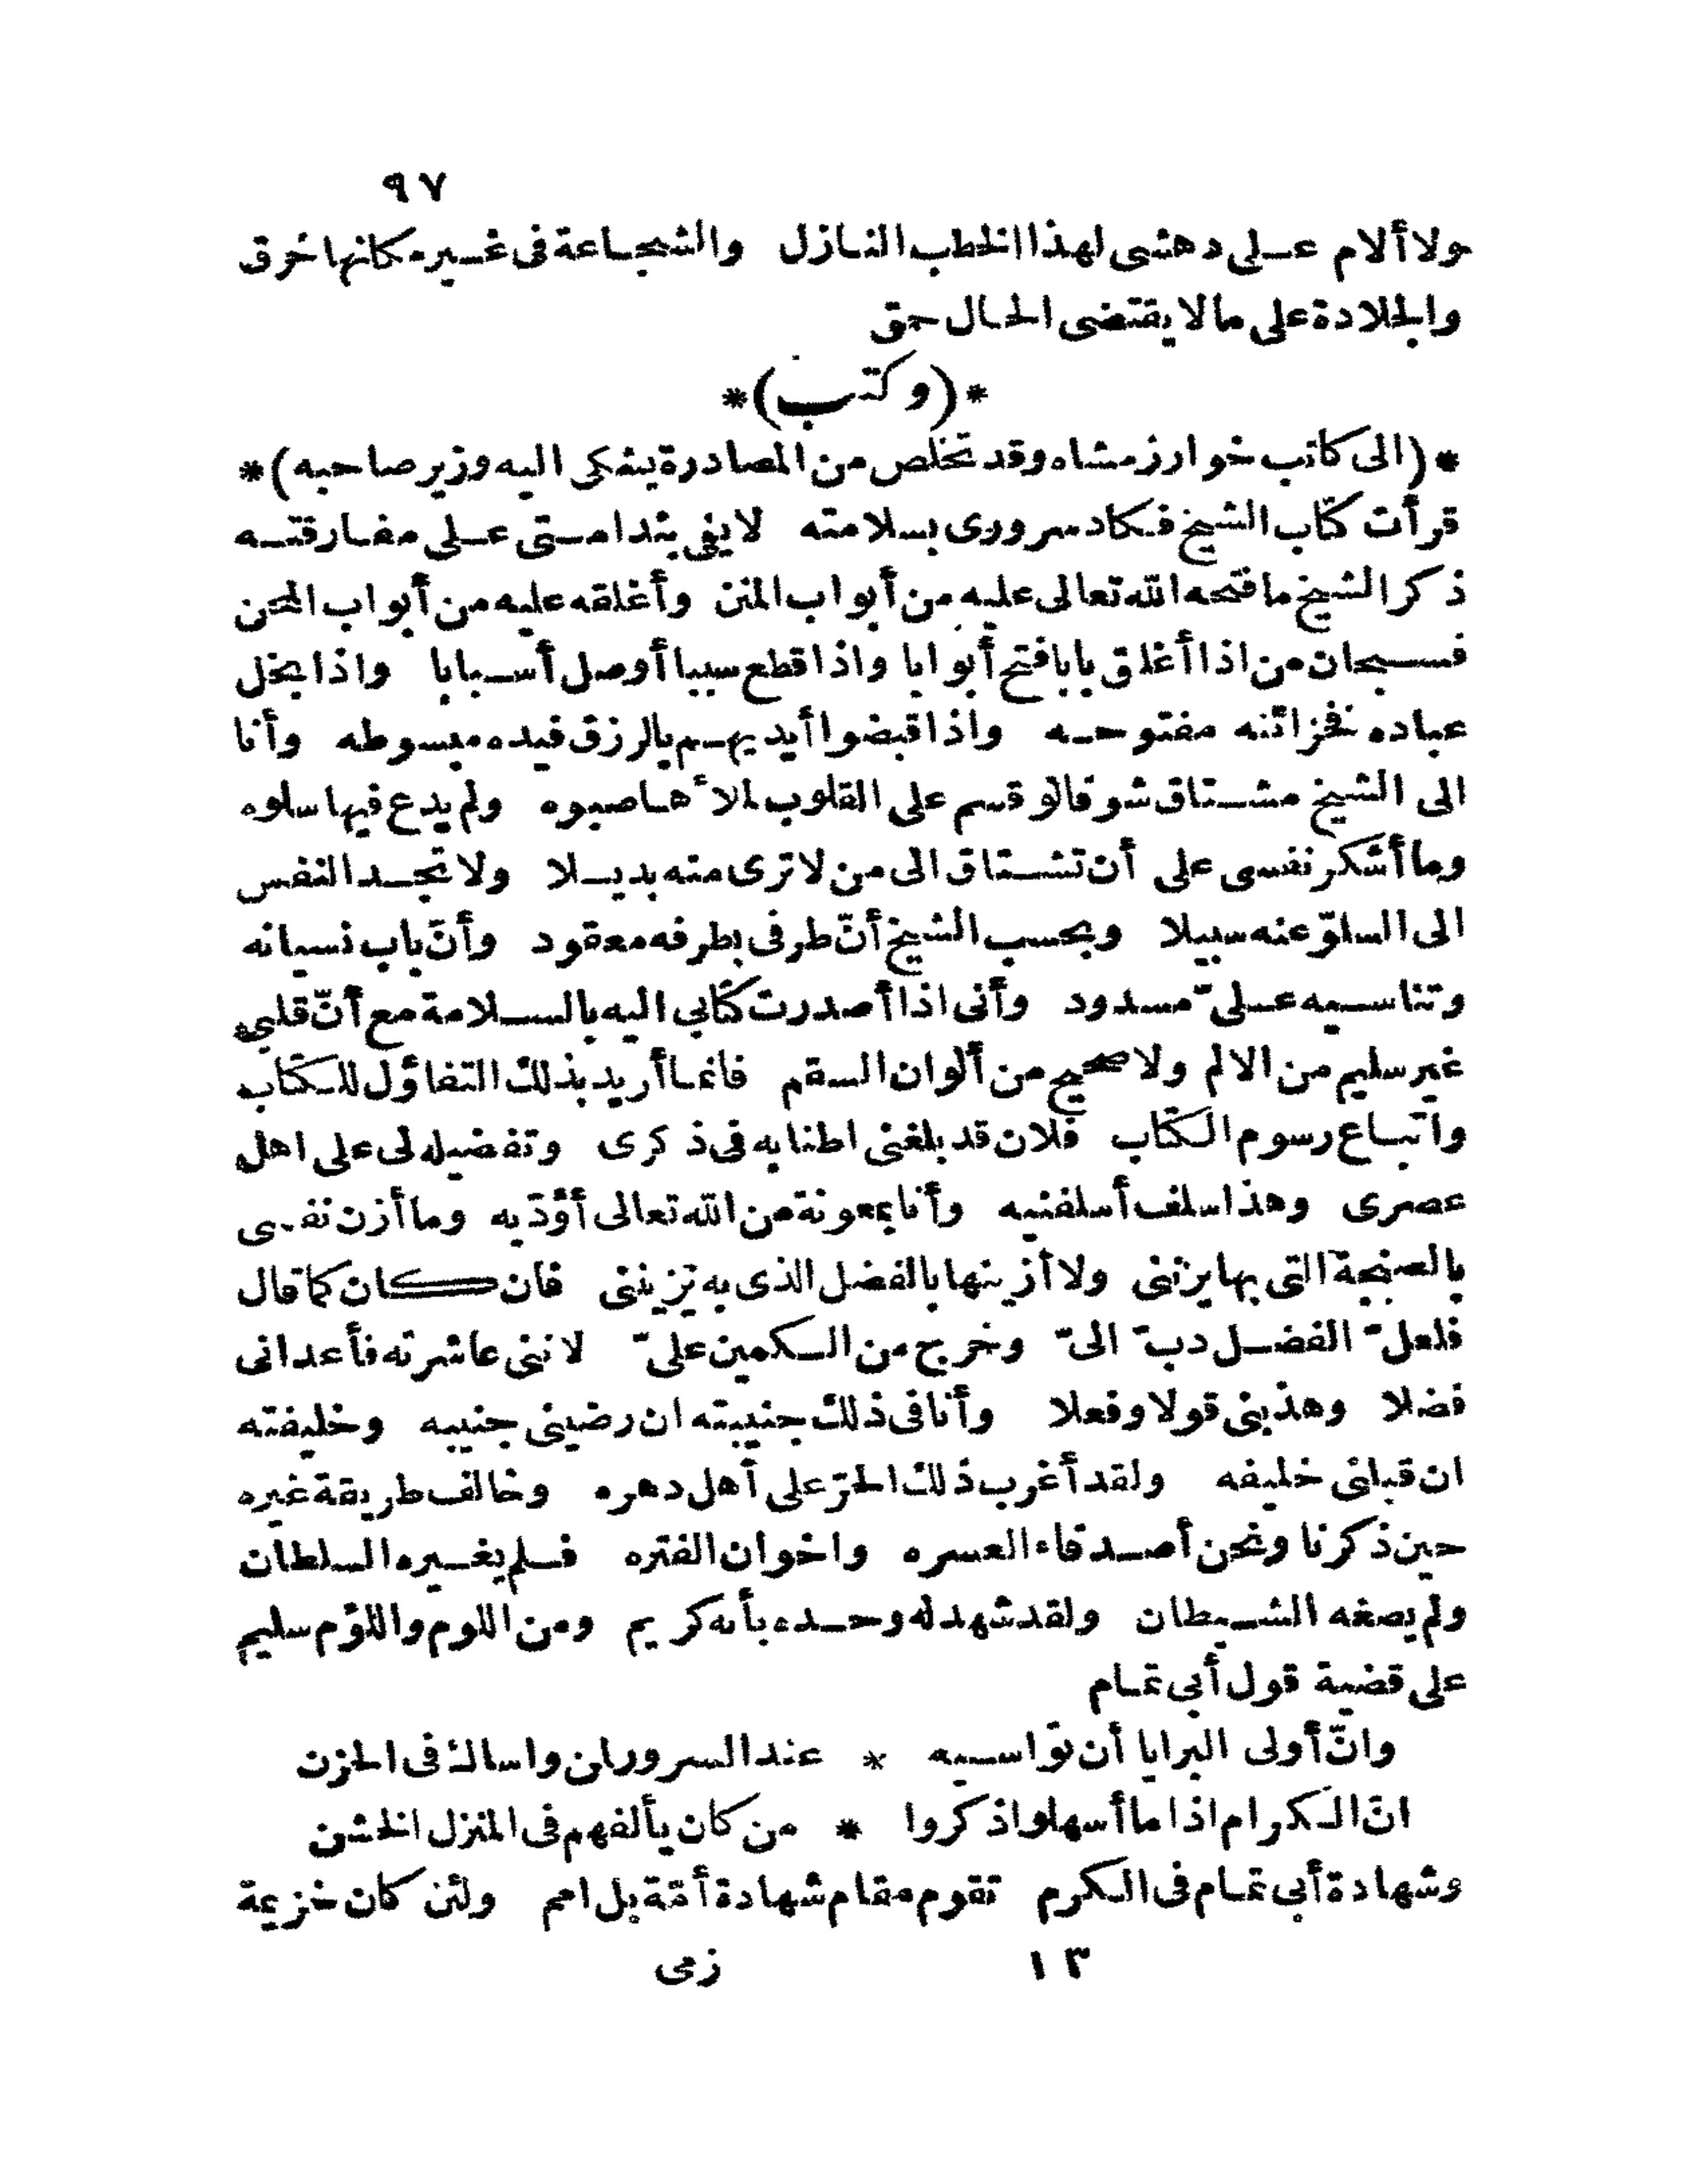 ٩٧
ولا ألام على دهشى لهذا الخطب النازل والشجاعة فى غير مكانها خرق
والجلادة على ما لا يقتضى الحال حمق
*(وكتب)*
*(الى كاتب خوارزمشاه وقد تخلص من المصادرة يشكى اليه وزير صاحبه)*
قرأت كتاب الشيخ فكاد سرورى بسلامته لا يفى بندامتى على مفارقته
ذكر الشيخ ما فتحه الله تعالى عليه من أبواب المنن وأغلقه عليه من أبواب المحن
فسبحان من اذا أغلق بابا فتح أبوابا واذا قطع سببا أوصل أسبابا واذا بخل
عباده فخزائنه مفتوحه واذا قبضوا أيديهم بالرزق فيده مبسوطه وأنا
الى الشيخ مشتاق شوقا لو قسم على القلوب لملأها صبوه ولم يدع فيها سلوه
وما أشكر نفسى على أن تشتاق الى من لا ترى منه بديلا ولا تجد النفس
الى السلوّ عنه سبيلا وبحسب الشيخ أنّ طرفى بطرفه معقود وأنّ باب نسيانه
وتناسيه علىّ مسدود وأنى اذا أصدرت كتابى اليه بالسلامة مع أنّ قلبى
غير سليم من الالم ولا صحيح من ألوان السقم فانما أريد بذلك التفاؤل للكتاب
واتباع رسوم الكتاب فلان قد بلغنى اطنابه فى ذكرى وتفضيله لى على اهل
عصرى وهذا سلف أسلفنيه وأنا بمعونة من الله تعالى أؤدّيه وما أزن نفسى
بالصنجة التى بها يزننى ولا أزينها بالفضل الذى به يزيننى فان كان كما قال
فلعلّ الفضل دبّ الىّ وخرج من الكمين علىّ لاننى عاشرته فأعدانى
فضلا وهذبنى قولا وفعلا وأنا فى ذلك جنيبته ان رضينى جنيبه وخليفته
ان قبلنى خليفه ولقد أغرب ذلك الحرّ على أهل دهره وخالف طريقة غيره
حين ذكرنا ونحن أصدقاء العسره واخوان الفتره فلم يغيره السلطان
ولم يصغه الشيطان ولقد شهد له وحده بأنه كريم ومن اللوم واللؤم سليم
على قضية قول أبى تمام
وانّ أولى البرايا أن تواسيه * عند السرور لمن واساك فى الحزن
انّ الكرام اذا ما أسهلوا ذكروا * من كان يألفهم فى المنزل الخشن
وشهادة أبى تمام فى الكرم تقوم مقام شهادة أمّة بل امم ولئن كان خزيمة
١٣ زمى